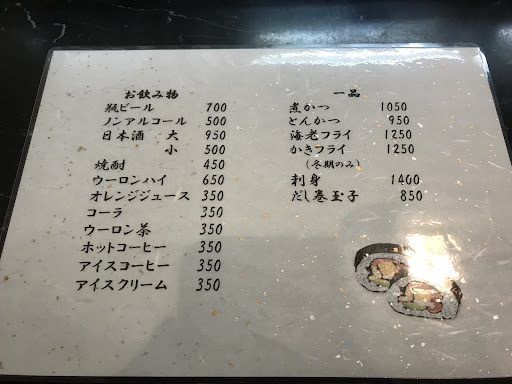 お飲み物
瓶ビール 700
ノンアルコール 500
日本酒 大 950
小 500
焼酎 450
ウーロンハイ 650
オレンジジュース 350
コーラ 350
ウーロン茶 350
ホットコーヒー 350
アイスコーヒー 350
アイスクリーム 350
一品
煮かつ 1050
とんかつ 950
海老フライ 1250
かきフライ 1250
(冬期のみ)
刺身 1400
だし巻玉子 850